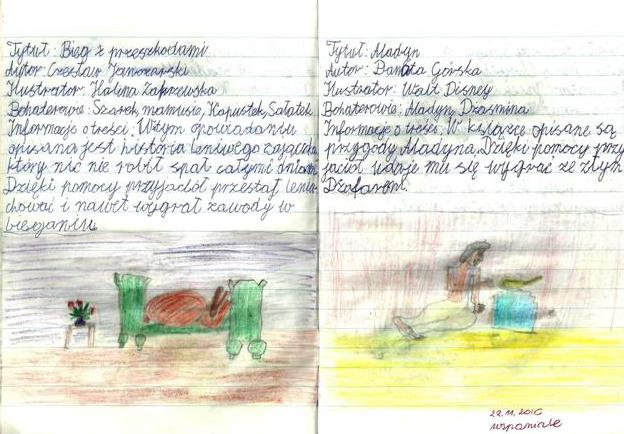 Tytuł: Bieg z przeszkodami
Autor: Czesław Janczarski
Ilustrator: Halina Zakrzewska
Bohaterowie: Szarek, mamusia, Kapustek, Sałatek
Informacje o treści: W tym opowiadaniu
opisana jest historia leniwego zajączka
który nic nie robił spał całymi dniami.
Dzięki pomocy przyjaciół przestał leniu-
chować i nawet wygrał zawody w
bieganiu.
Tytuł: Aladyn
Autor: Danata Górska
Ilustrator: Walt Disney
Bohaterowie: Aladyn, Dżasmina
Informacje o treści. W książce opisane są
przygody Aladyna. Dzięki pomocy przy
jaciół udaje mu się wygrać ze złym
Dżafarem.
22.11.2016
wspaniale